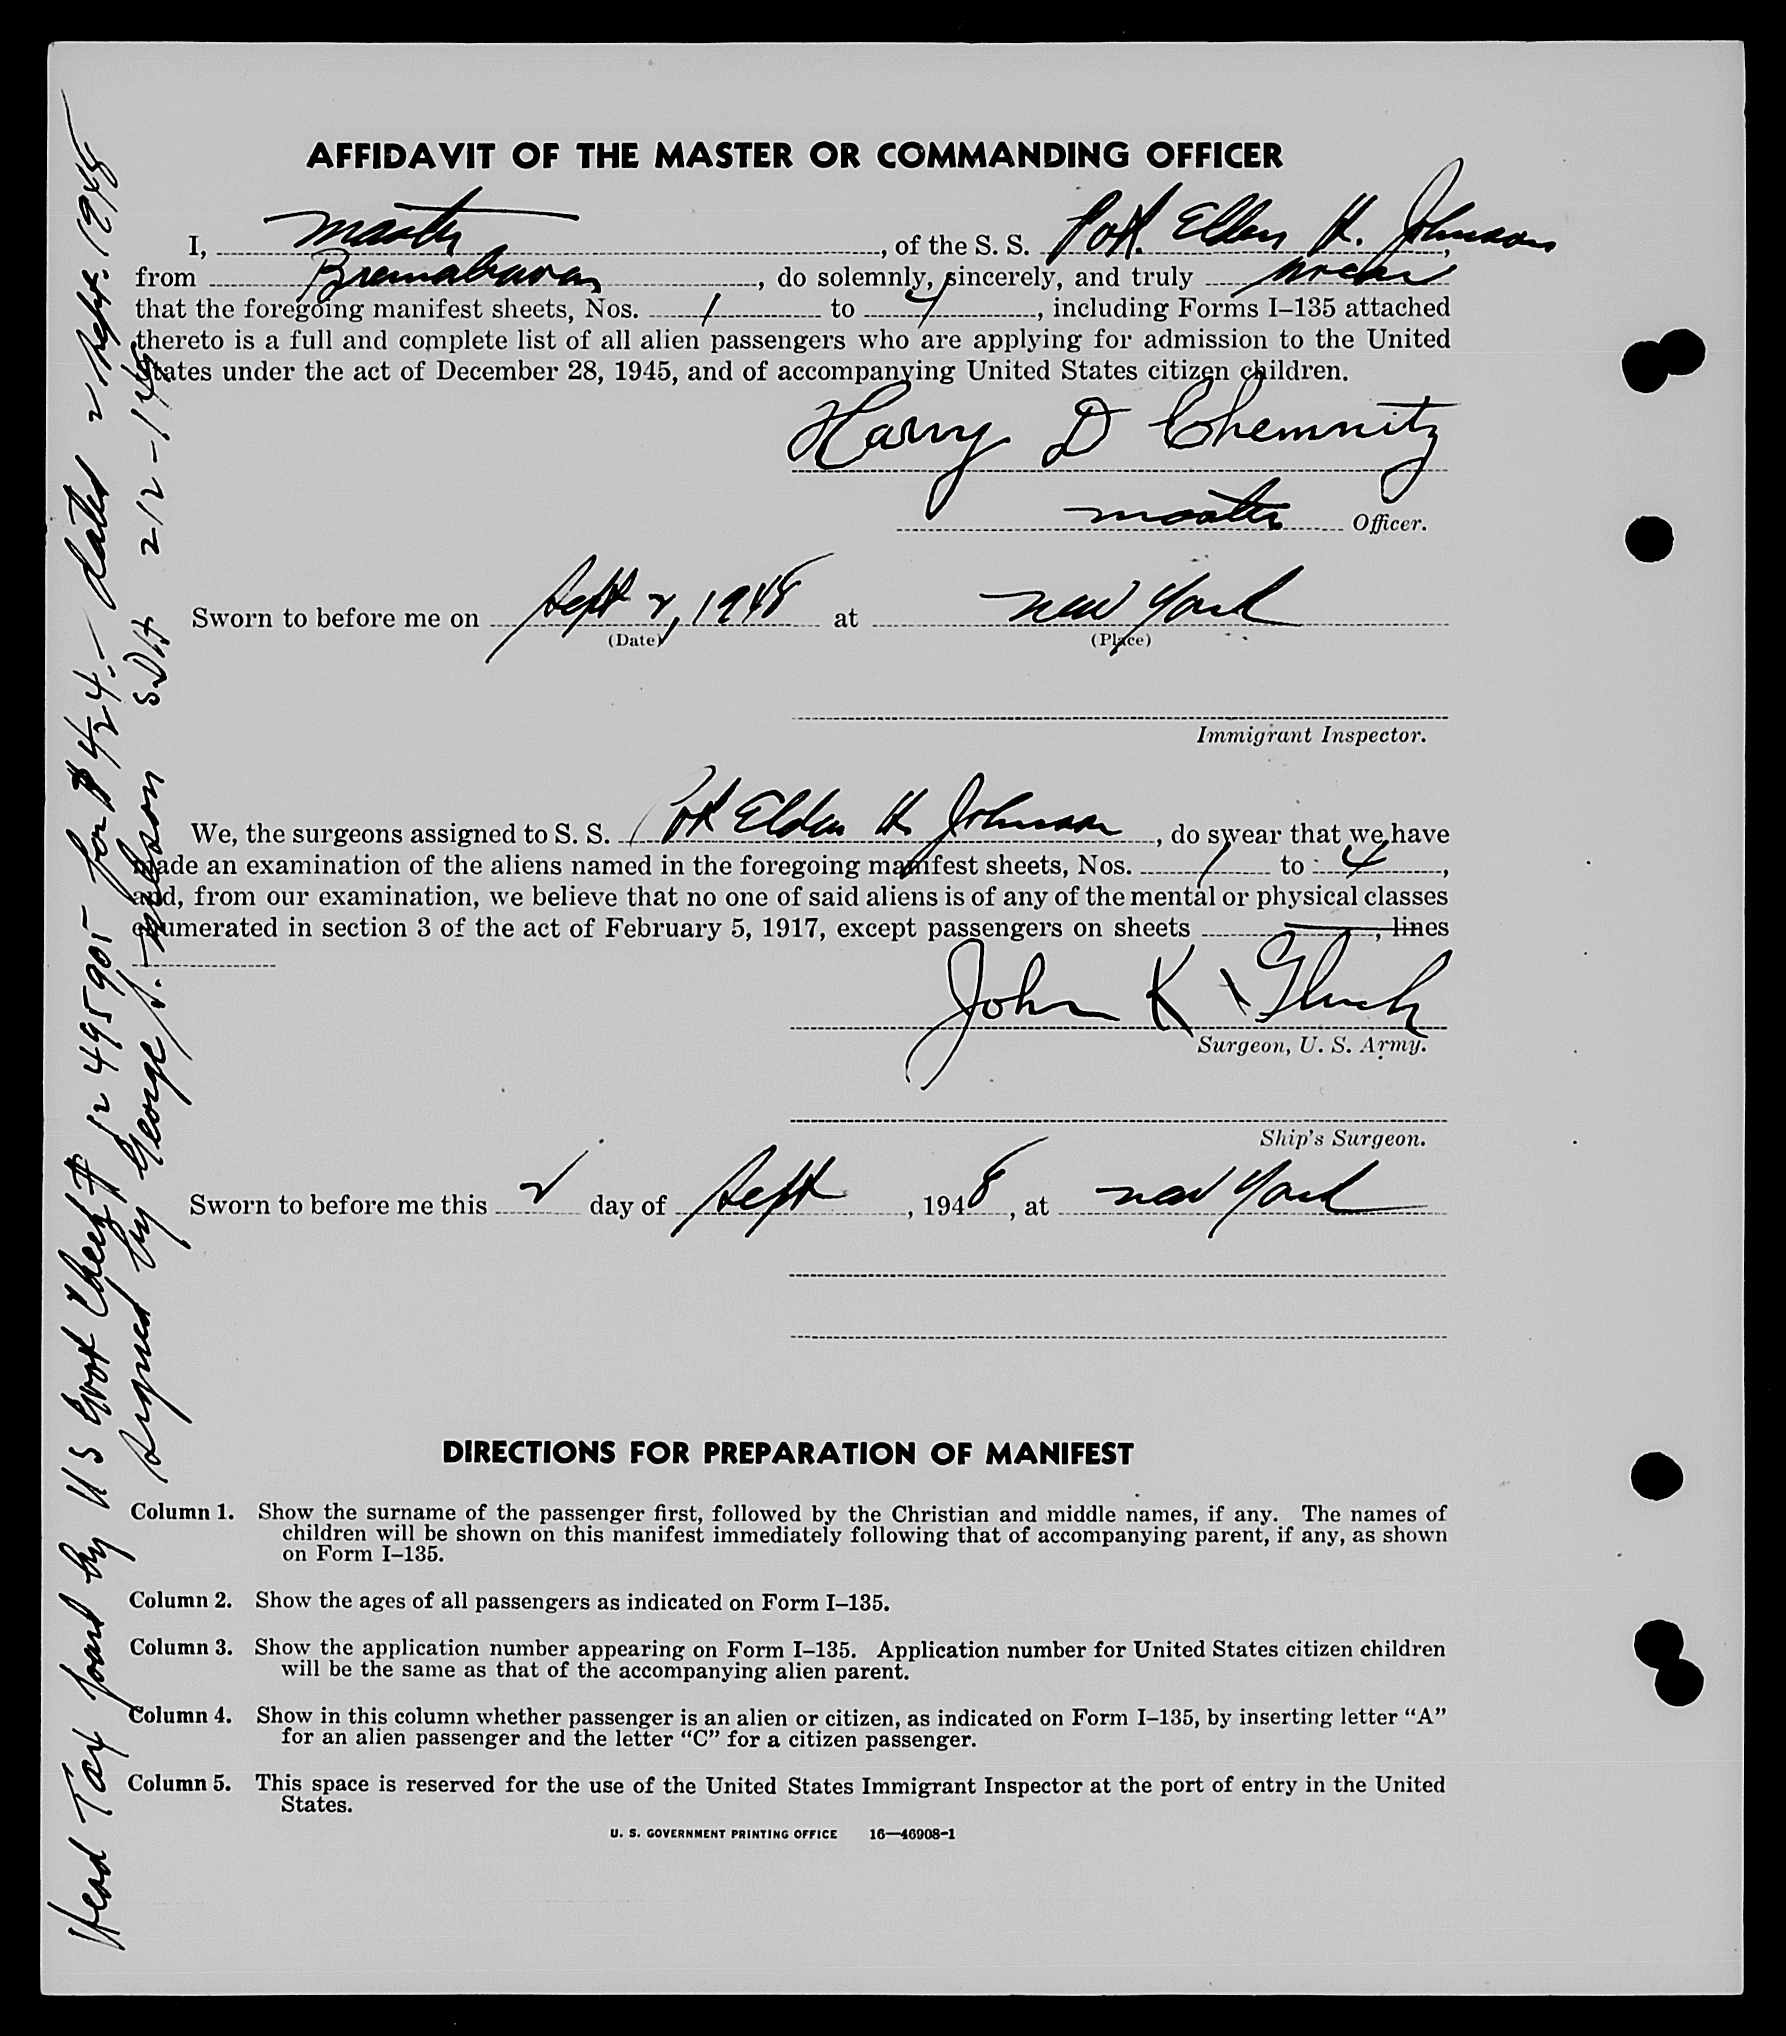 AFFIDAVIT OF THE MASTER OR COMMANDING OFFICER
I, Master, of the S. S. Pvt. Elden H. Johnson,
from Bremerhaven, do solemnly, sincerely, and truly swear
that the foregoing manifest sheets, Nos. 1 to 4, including Forms I–135 attached
thereto is a full and complete list of all alien passengers who are applying for admission to the United
States under the act of December 28, 1945, and of accompanying United States citizen children.
Harry D Chemnitz
Master Officer.
Sworn to before me on Sept 2, 1948 at New York
(Date) (Place)
Immigrant Inspector.
We, the surgeons assigned to S. S. Pvt Elden H. Johnson, do swear that we have
made an examination of the aliens named in the foregoing manifest sheets, Nos. 1 to 4,
and, from our examination, we believe that no one of said aliens is of any of the mental or physical classes
enumerated in section 3 of the act of February 5, 1917, except passengers on sheets , lines
John K
Surgeon, U. S. Army.
Ship's Surgeon.
Sworn to before me this 2 day of Sept, 1948, at New York
DIRECTIONS FOR PREPARATION OF MANIFEST
Column 1. Show the surname of the passenger first, followed by the Christian and middle names, if any. The names of
children will be shown on this manifest immediately following that of accompanying parent, if any, as shown
on Form I–135.
Column 2. Show the ages of all passengers as indicated on Form I–135.
Column 3. Show the application number appearing on Form I–135. Application number for United States citizen children
will be the same as that of the accompanying alien parent.
Column 4. Show in this column whether passenger is an alien or citizen, as indicated on Form I–135, by inserting letter “A”
for an alien passenger and the letter “C” for a citizen passenger.
Column 5. This space is reserved for the use of the United States Immigrant Inspector at the port of entry in the United
States.
U. S. GOVERNMENT PRINTING OFFICE 16—46908-1
Head Tax paid by US Govt Check # 12 495905 for $424.- dated 2 Sept. 1948
signed by George S. Nelson